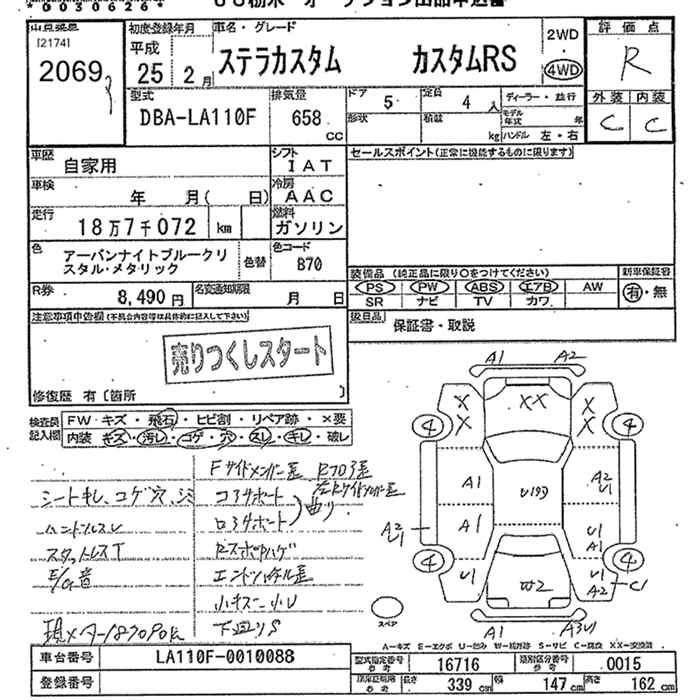 *0030626*
出品票
[2174]
2069
初度登録年月
平成
25 2月
車名・グレード
ステラカスタム カスタムRS
2WD
4WD
評価点
R
外装 内装
C C
型式
DBA-LA110F
排気量
658 CC
ドア 5
定員 4 人
形状
積載 kg
ディーラー・並行
モデル年式 年
ハンドル 左・右
車歴 自家用
シフト IAT
セールスポイント(正常に機能するものに限ります)
車検 年 月( 日)
冷房 AAC
走行 18万7千072 km
燃料 ガソリン
色 アーバンナイトブルークリスタル・メタリック
色替
色コード B70
装備品 (純正品に限り○をつけてください)
新車保証書
PS PW ABS エアB AW
SR ナビ TV カワ
有・無
R券 8,490円
名変通知期限 月 日
後日品 保証書・取説
注意事項申告欄(不具合内容等は具体的に記入して下さい)
売りつくしスタート
修復歴 有〔箇所 〕
検査員記入欄
FW キズ・飛石・ヒビ割・リペア跡・×要
内装 キズ・汚レ・コゲ・穴・スレ・キレ・破レ
シートキレ、コゲ穴、シミ
ハンドルスレ
スタットレスT
E/G音
現メーター187090k
Fサイドメンバー歪
コアサポート
ロアサポート
曲り
エンドパネル歪
小キズ 小U
下廻りS
A1 A2
XX
X X
X X
4 4
A1 U199 A2 U1
A2 U1
A1 U1 A1
4 4
U1 W2 U1 A2 C1
スペア
A1 A3U1
A=キズ E=エクボ U=凹み W=補修跡 S=サビ C=腐食 XX=交換済
車台番号 LA110F-0010088
登録番号
型式指定番号 参考 16716
類別区分番号 参考 0015
参考 長さ 339 cm 幅 147 cm 高さ 162 cm